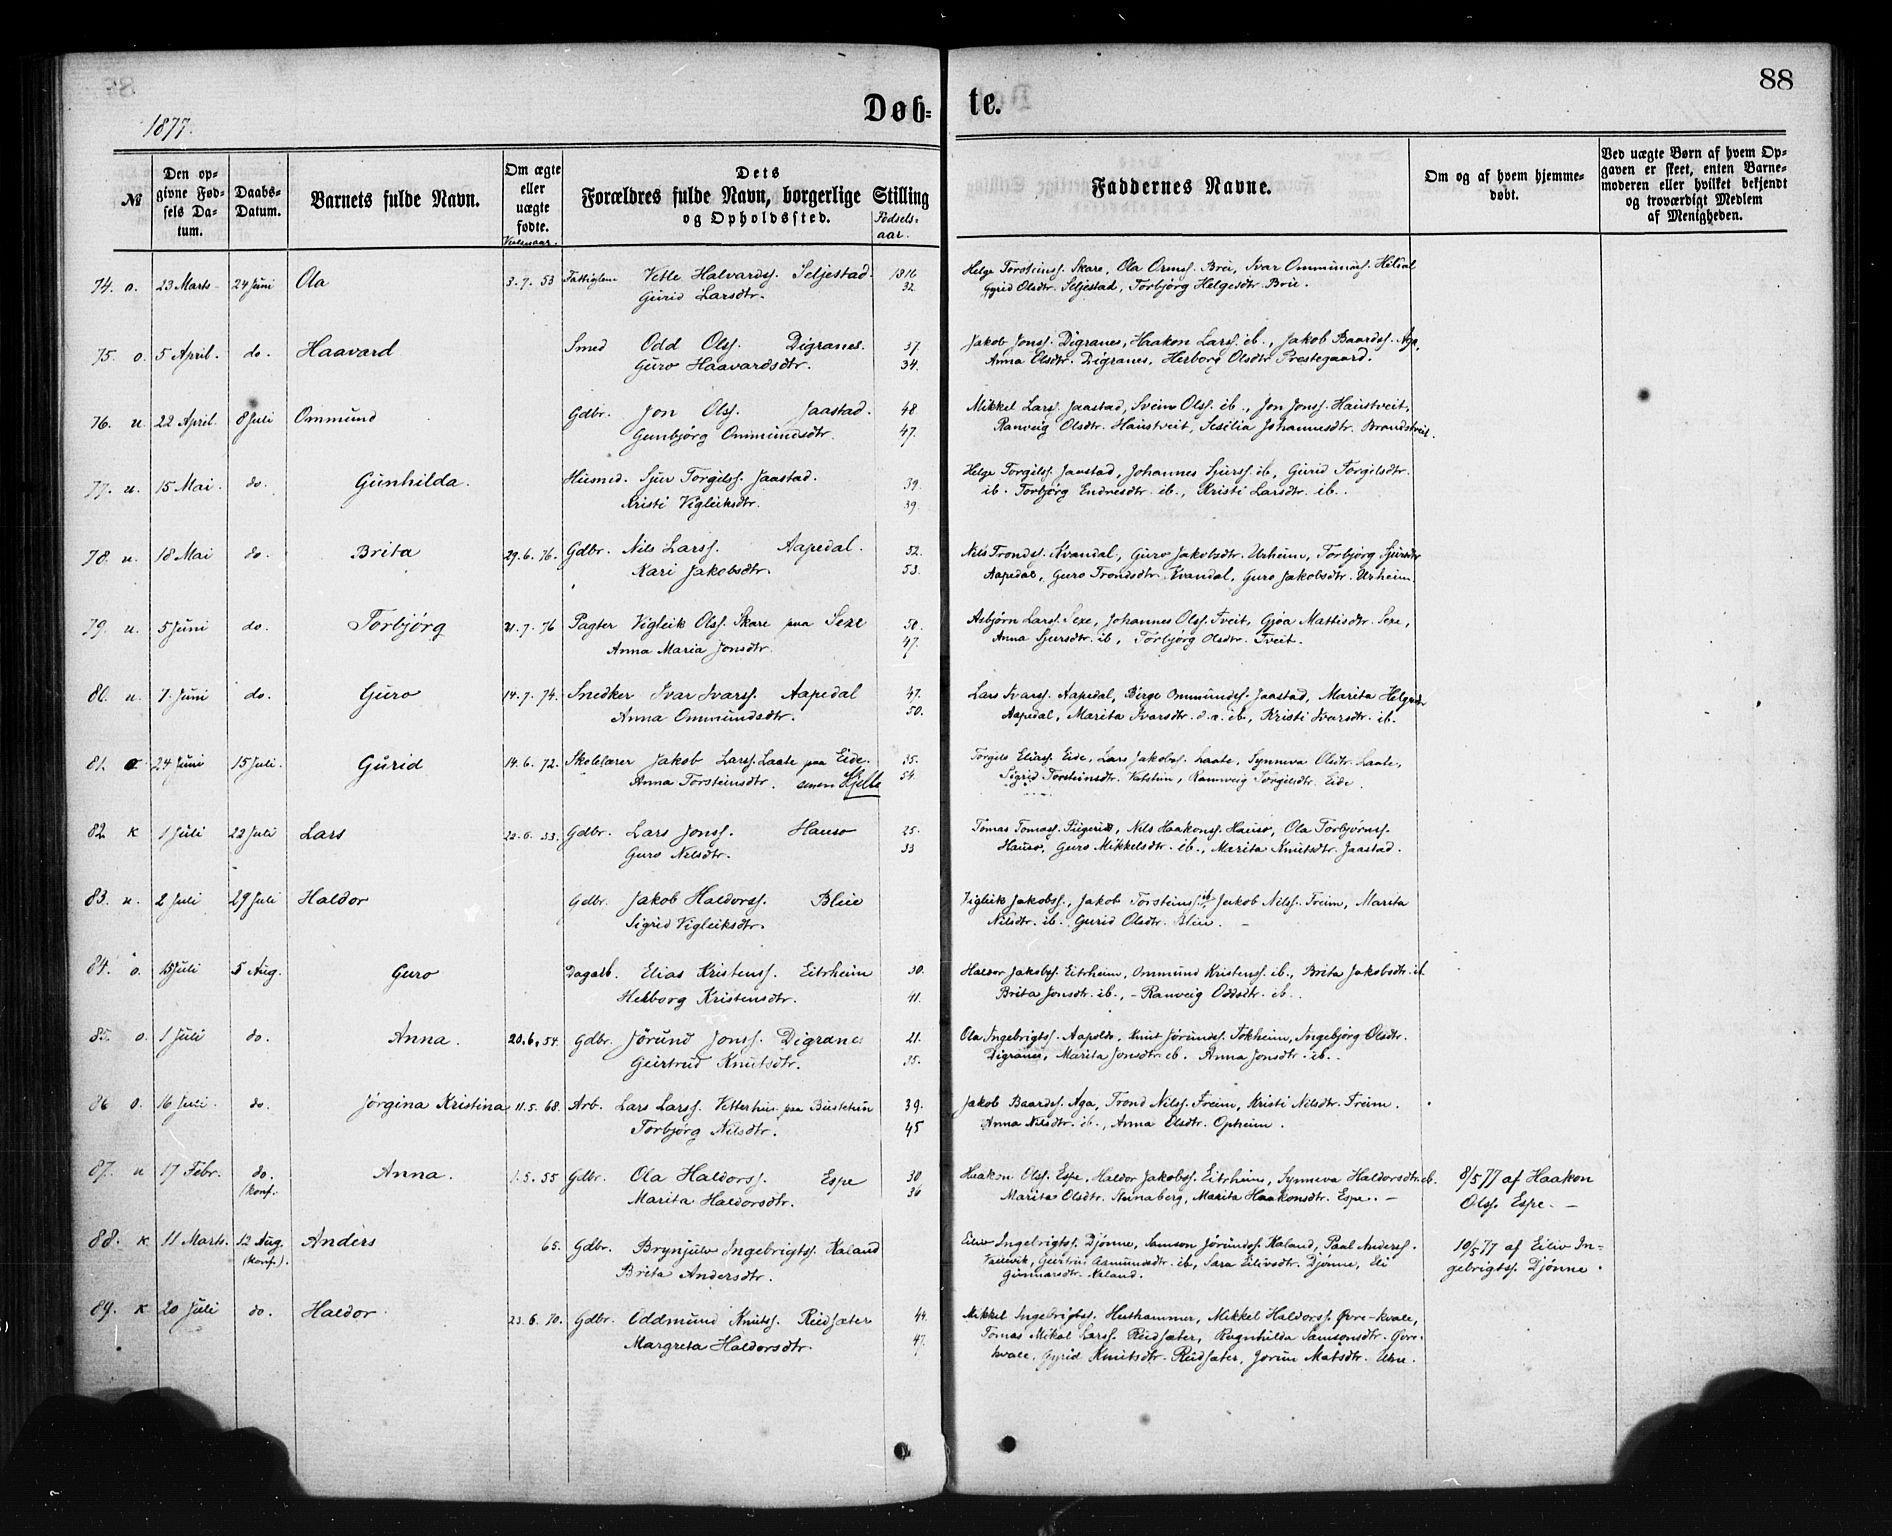 88
Døb= te.
1877.
№ | Den op-givne Fød-sels Da-tum. | Daabs-Datum. | Barnets fulde Navn. | Om ægte eller uægte fødte. | Dets Forældres fulde Navn, borgerlige Stilling og Opholdssted. | Fødsels-aar. | Faddernes Navne. | Om og af hvem hjemme-døbt. | Ved uægte Børn af hvem Op-gaven er skeet, enten Barne-moderen eller hvilket bekjendt og troværdigt Medlem af Menigheden.
74. o. 23 Marts 24 Juni Ola 3.7.53 Fattiglem Vetle Halvardss. Seljestad. 1816 Helge Torsteinss. Skare, Ola Ormss. Brei, Ivar Ommunds.
Gurid Larsdtr. 32. Gyrid Olsdtr. Seljestad, Torbjörg Helgesdtr. Brie.
75. o. 5 April. do. Haavard Smed Odd Olss. Digranes. 37. Jakob Jonss. Digranes, Haakon Larss. ib., Jakob Baardss. Aga,
Guro Haavardsdtr. 34. Anna Olsdtr. Digranes, Herborg Olsdtr. Prestegaard.
76. u. 22 April 8 Juli Ommund Gdbr. Jon Olss. Jaastad. 48 Mikkel Larss. Jaastad, Svein Olss. ib., Jon Jonss. Haustveit,
Gunbjörg Ommundsdtr. 47. Ranveig Olsdtr. Haustveit, Sesilia Johannesdtr. Brandstveit.
77. u. 15 Mai. do. Gunhilda. Husmd. Sjur Torgilss. Jaastad. 39. Helge Torgilss. Jaastad, Johannes Sjurss. ib, Gurid Torgilsdtr.
Kristi Vigleiksdtr. 39 ib. Torbjørg Endresdtr. ib., Kristi Larsdtr. ib.
78. u. 18 Mai do. Brita 29.6.76. Gdbr. Nils Larss. Aapedal. 52. Nils Tronds. Kvandal, Guro Jakobsdtr. Urheim, Torbjörg Sjursdtr
Kari Jakobsdtr. 53. Aapedal, Guro Trondsdtr. Kvandal, Guro Jakobsdtr. Urheim.
79. u. 5 Juni do. Torbjørg 21.7.76 Pagter Vigleik Olss. Skare paa Sexe 50. Asbjørn Larss. Sexe, Johannes Olss. Tveit, Gjøa Mattisdtr. Sexe,
Anna Maria Jonsdtr. 47. Anna Sjursdtr. ib, Torbjörg Olsdtr. Tveit.
80. u. 7. Juni do. Guro 14.7.74. Snedker Ivar Ivarss. Aapedal 47. Lars Ivarss. Aapedal, Birge Ommundss. Jaastad, Marita Helgesdtr
Anna Ommundsdtr. 50. Aapedal, Marita Ivarsdtr. d.æ. ib., Kristi Ivarsdtr. ib.
81. o 24 Juni 15 Juli. Gurid 14.6.72. Skolelærer Jakob Larss. Laate paa Eide. 35. Torgils Eliass. Eide, Lars Jakobss. Laate, Synneva Olsdtr. Laate,
Anna Torsteinsdtr. 54. Sigrid Torsteinsdtr. Ranveig Torgilsdtr. Eide.
82. K 1 Juli 22 Juli Lars 22.6.53. Gdbr. Lars Jonss. Hauso 25. Tomas Tomass. Nils Haakonss. Hauso, Ola Torbjørnss.
Guro Nilsdtr. 33 Hauso, Guro Mikkelsdtr. ib., Marita Knutsdtr. Jaastad.
83. u. 2 Juli 29 Juli Haldor Gdbr. Jakob Haldorss. Bleie Vigleik Jakobss., Jakob Torsteinss. ib, Jakob Nilss. Freim, Marita
Sigrid Vigleiksdtr. Nilsdtr. ib. Gurid Olsdtr. Bleie.
84. o. 15 Juli 5 Aug. Guro Dagarb. Elias Kristenss. Eitrheim 30. Haldor Jakobss. Eitrheim, Ommund Kristenss. ib., Brita Jakobsdtr. ib
Herborg Kristensdtr. 41. Brita Jonsdtr. ib., - Ranveig Oddsdtr. ib..
85. o. 1 Juli do. Anna. 20.6.54. Gdbr. Jørund Jonss. Digranes 21. Ola Ingebrigtss. Aapoldr. Knut Jörundss. Tokheim, Ingebjørg Olsdtr.
Geirtrud Knutsdtr. 35. Digranes, Marita Jonsdtr. ib. Anna Jonsdtr. ib.
86 o. 16 Juli. do. Jørgina Kristina 11.5.68. Arb. Lars Larss. Vetterhus paa Bustetun 39. Jakob Baardss. Aga, Trond Nilss. Freim, Kristi Nilsdtr. Freim.
Torbjørg Nilsdtr. 45 Anna Nilsdtr. ib., Anna Olsdtr. Opheim.
87. u 17 Febr. do. (konf.) Anna. 1.5.55 Gdbr. Ola Haldorss. Espe 30 Haakon Olss. Espe, Haldor Jakobss. Eitrheim, Synneva Haldorsdtr. ib. 8/5 77 af Haakon
Marita Haldorsdtr. 36 Marita Olsdtr. Steinaberg, Marita Haakonsdtr. Espe. - Olss. Espe. -
88. K. 11 Marts. 12 Aug. (konf.). Anders 65. Gdbr. Brynjulv Ingebrigtss. Kaland Eiliv Ingebrigtss. Djønne, Samson Jörundss. Kaland, Paal Anderss. 10/5 77 af Eiliv In=
Brita Andersdtr. Vallevik, Geirtrud Asmundsdtr. ib, Sara Eilivsdtr. Djønne, Eli gebrigtss. Djønne.
Gunnarsdtr. Kaland.
89. K 20 Juli do. Haldor 23.6.70. Gdbr. Oddmund Knutss. Reisæter 44. Mikkel Ingebrigtss. Huthammer, Mikkel Haldorss. Øvre-kvale,
Margreta Haldorsdtr. 47. Tomas Mikal Larss. Reisæter, Ragnhilda Samsonsdtr. Øvre-
kvale, Gyrid Knutsdtr. Reisæter, Jorun Matsdtr. Utne.